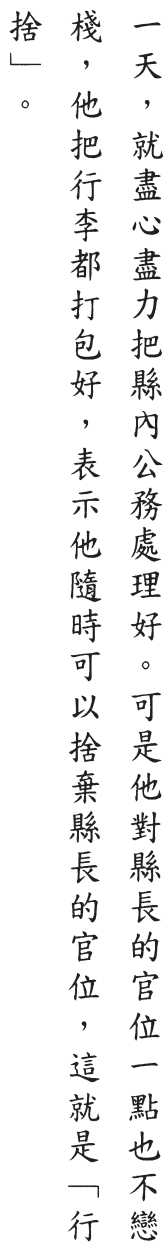 一天，就盡心盡力把縣內公務處理好。可是他對縣長的官位一點也不戀
棧，他把行李都打包好，表示他隨時可以捨棄縣長的官位，這就是「行
捨」。